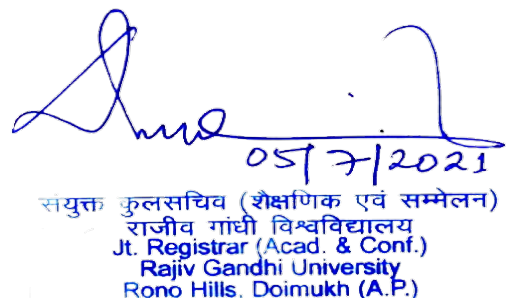 05/7/2021
संयुक्त कुलसचिव (शैक्षणिक एवं सम्मेलन)
राजीव गांधी विश्वविद्यालय
Jt. Registrar (Acad. & Conf.)
Rajiv Gandhi University
Rono Hills, Doimukh (A.P.)